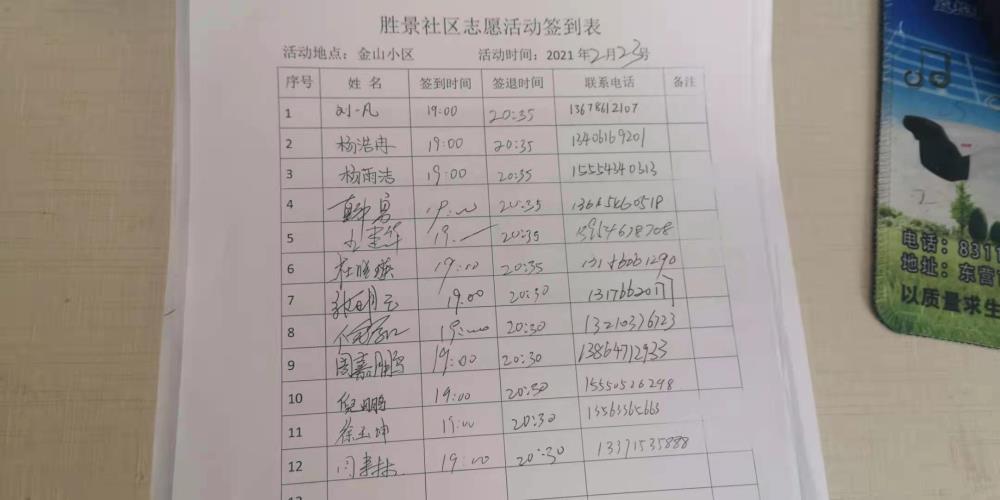 胜景社区志愿活动签到表
活动地点：金山小区 活动时间：2021年2月23号
序号 姓名 签到时间 签退时间 联系电话 备注
1 刘一凡 19:00 20:35 13678612107
2 杨浩冉 19:00 20:35 13406169201
3 杨雨洁 19:00 20:35 15554340313
4 19:00 20:35
5 19. 20:35
6 19:00 20:35
7 19:00 20:30
8 19:00 20:30 13210376723
9 周嘉鹏 19:00 20:30 13864712933
10 倪鹏 19:00 20:30 15550526298
11 徐玉坤 19:00 20:30
12 19:00 20:30 13371535888
电话：8311
地址：东营
以质量求生